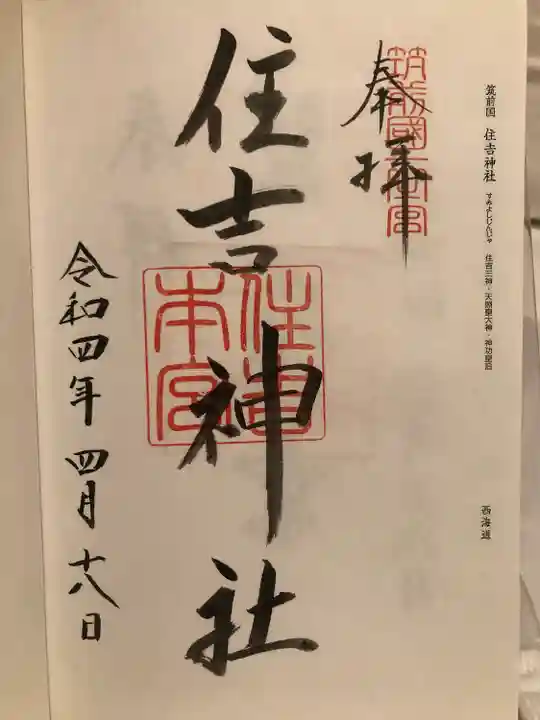 筑前国 住吉神社 すみよしじんじゃ 住吉三神・天照皇大神・神功皇后
西海道
筑前國一之宮
奉拝
住吉神社
住吉本宮
令和四年 四月十八日